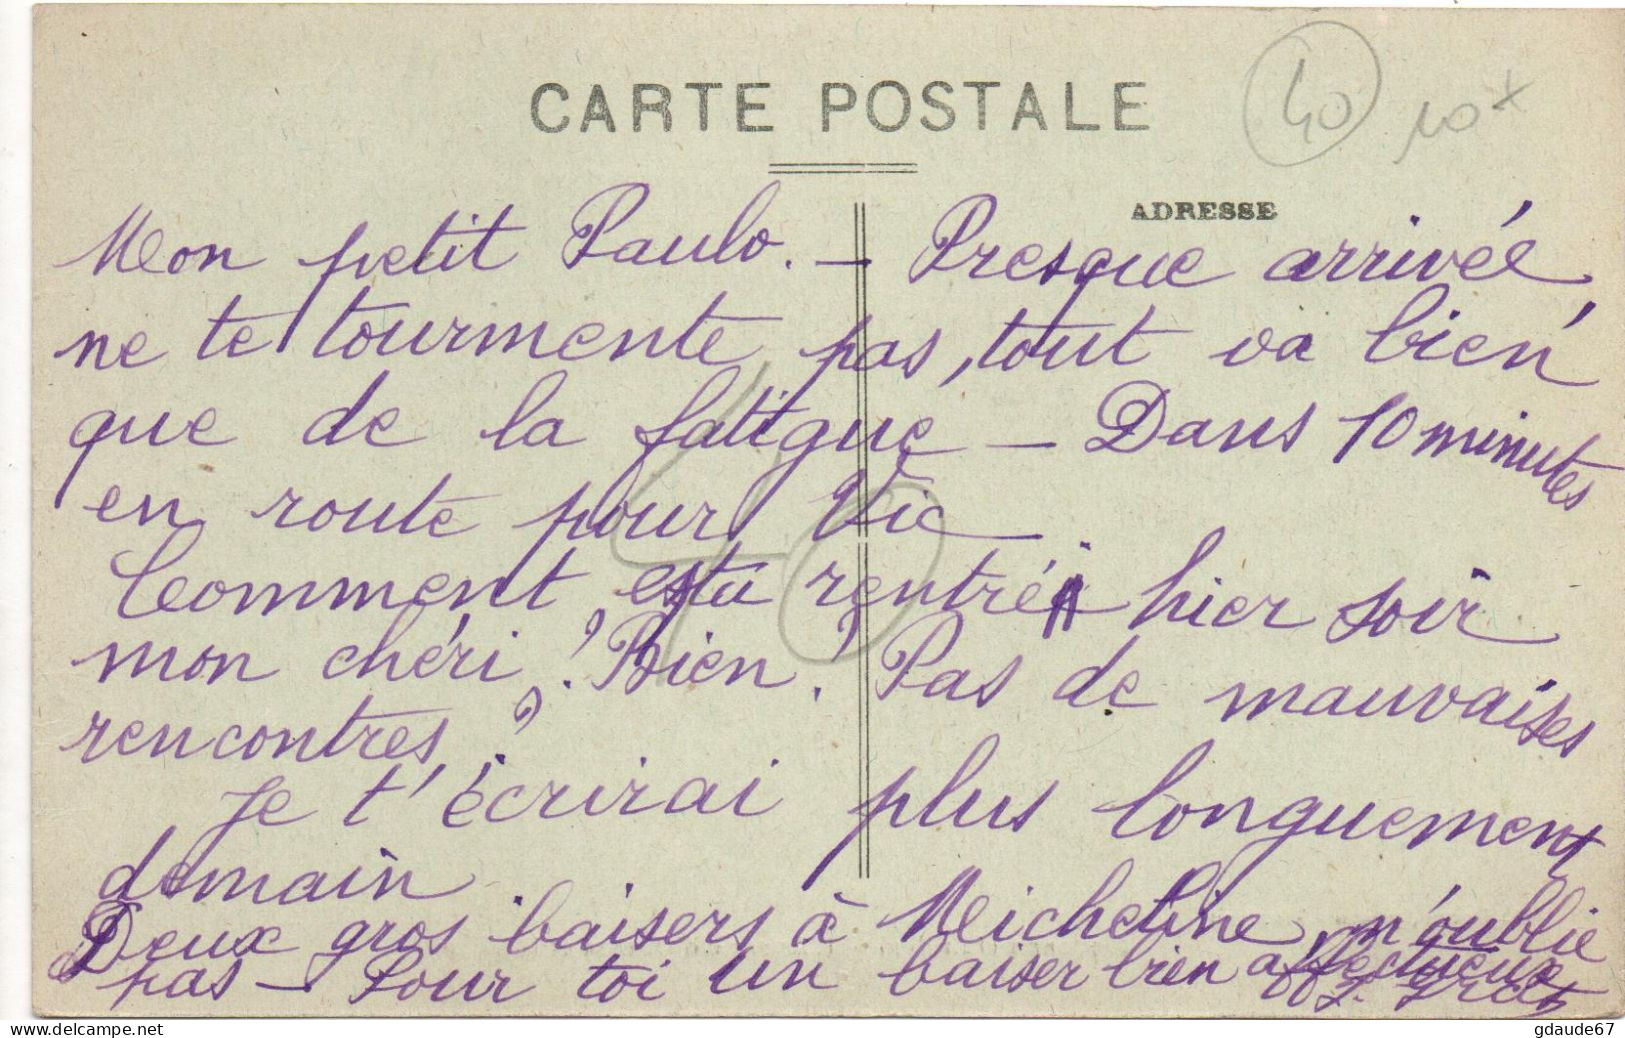 CARTE POSTALE
40
10
ADRESSE
Mon petit Paulo. — Presque arrivée,
ne te tourmente pas, tout va bien
que de la fatigue — Dans 10 minutes
en route pour Vic
Comment es tu rentré hier soir
mon chéri ? Bien ? Pas de mauvaises
rencontres ?
Je t'écrirai plus longuement
demain
Deux gros baisers à Micheline, n'oublie
pas — Pour toi un baiser bien affectueux
gdaude67